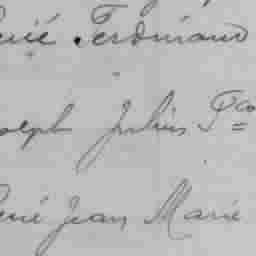 René Ferdinand
Joseph Julius
René Jean Marie